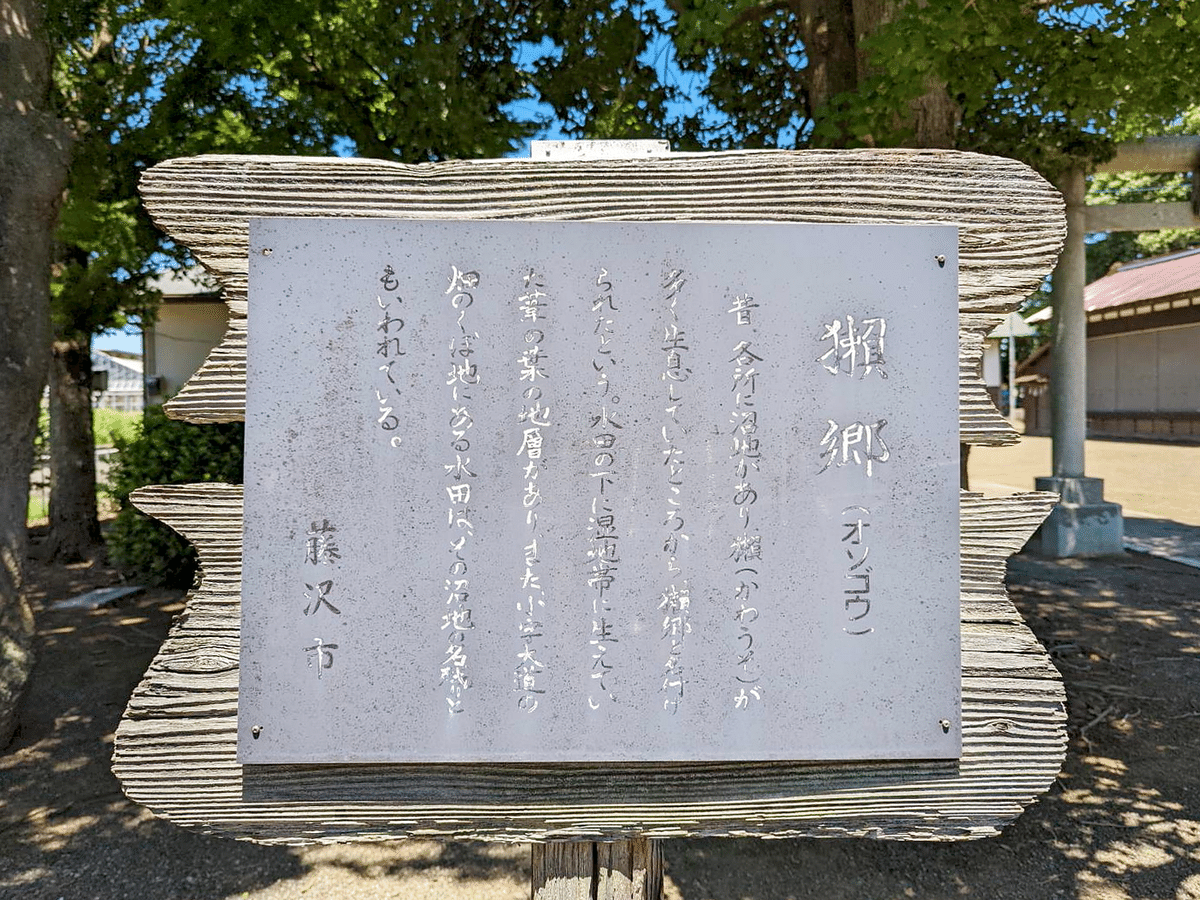 獺郷(オソゴウ)
昔、各所に沼地があり、獺(かわうそ)が
多く生息していたところから、獺郷と名付け
られたという。水田の下に湿地帯に生えてい
た葦の葉の地層がありまた、小字大道の
畑のくぼ地にある水田は、その沼地の名残りと
もいわれている。
藤沢市